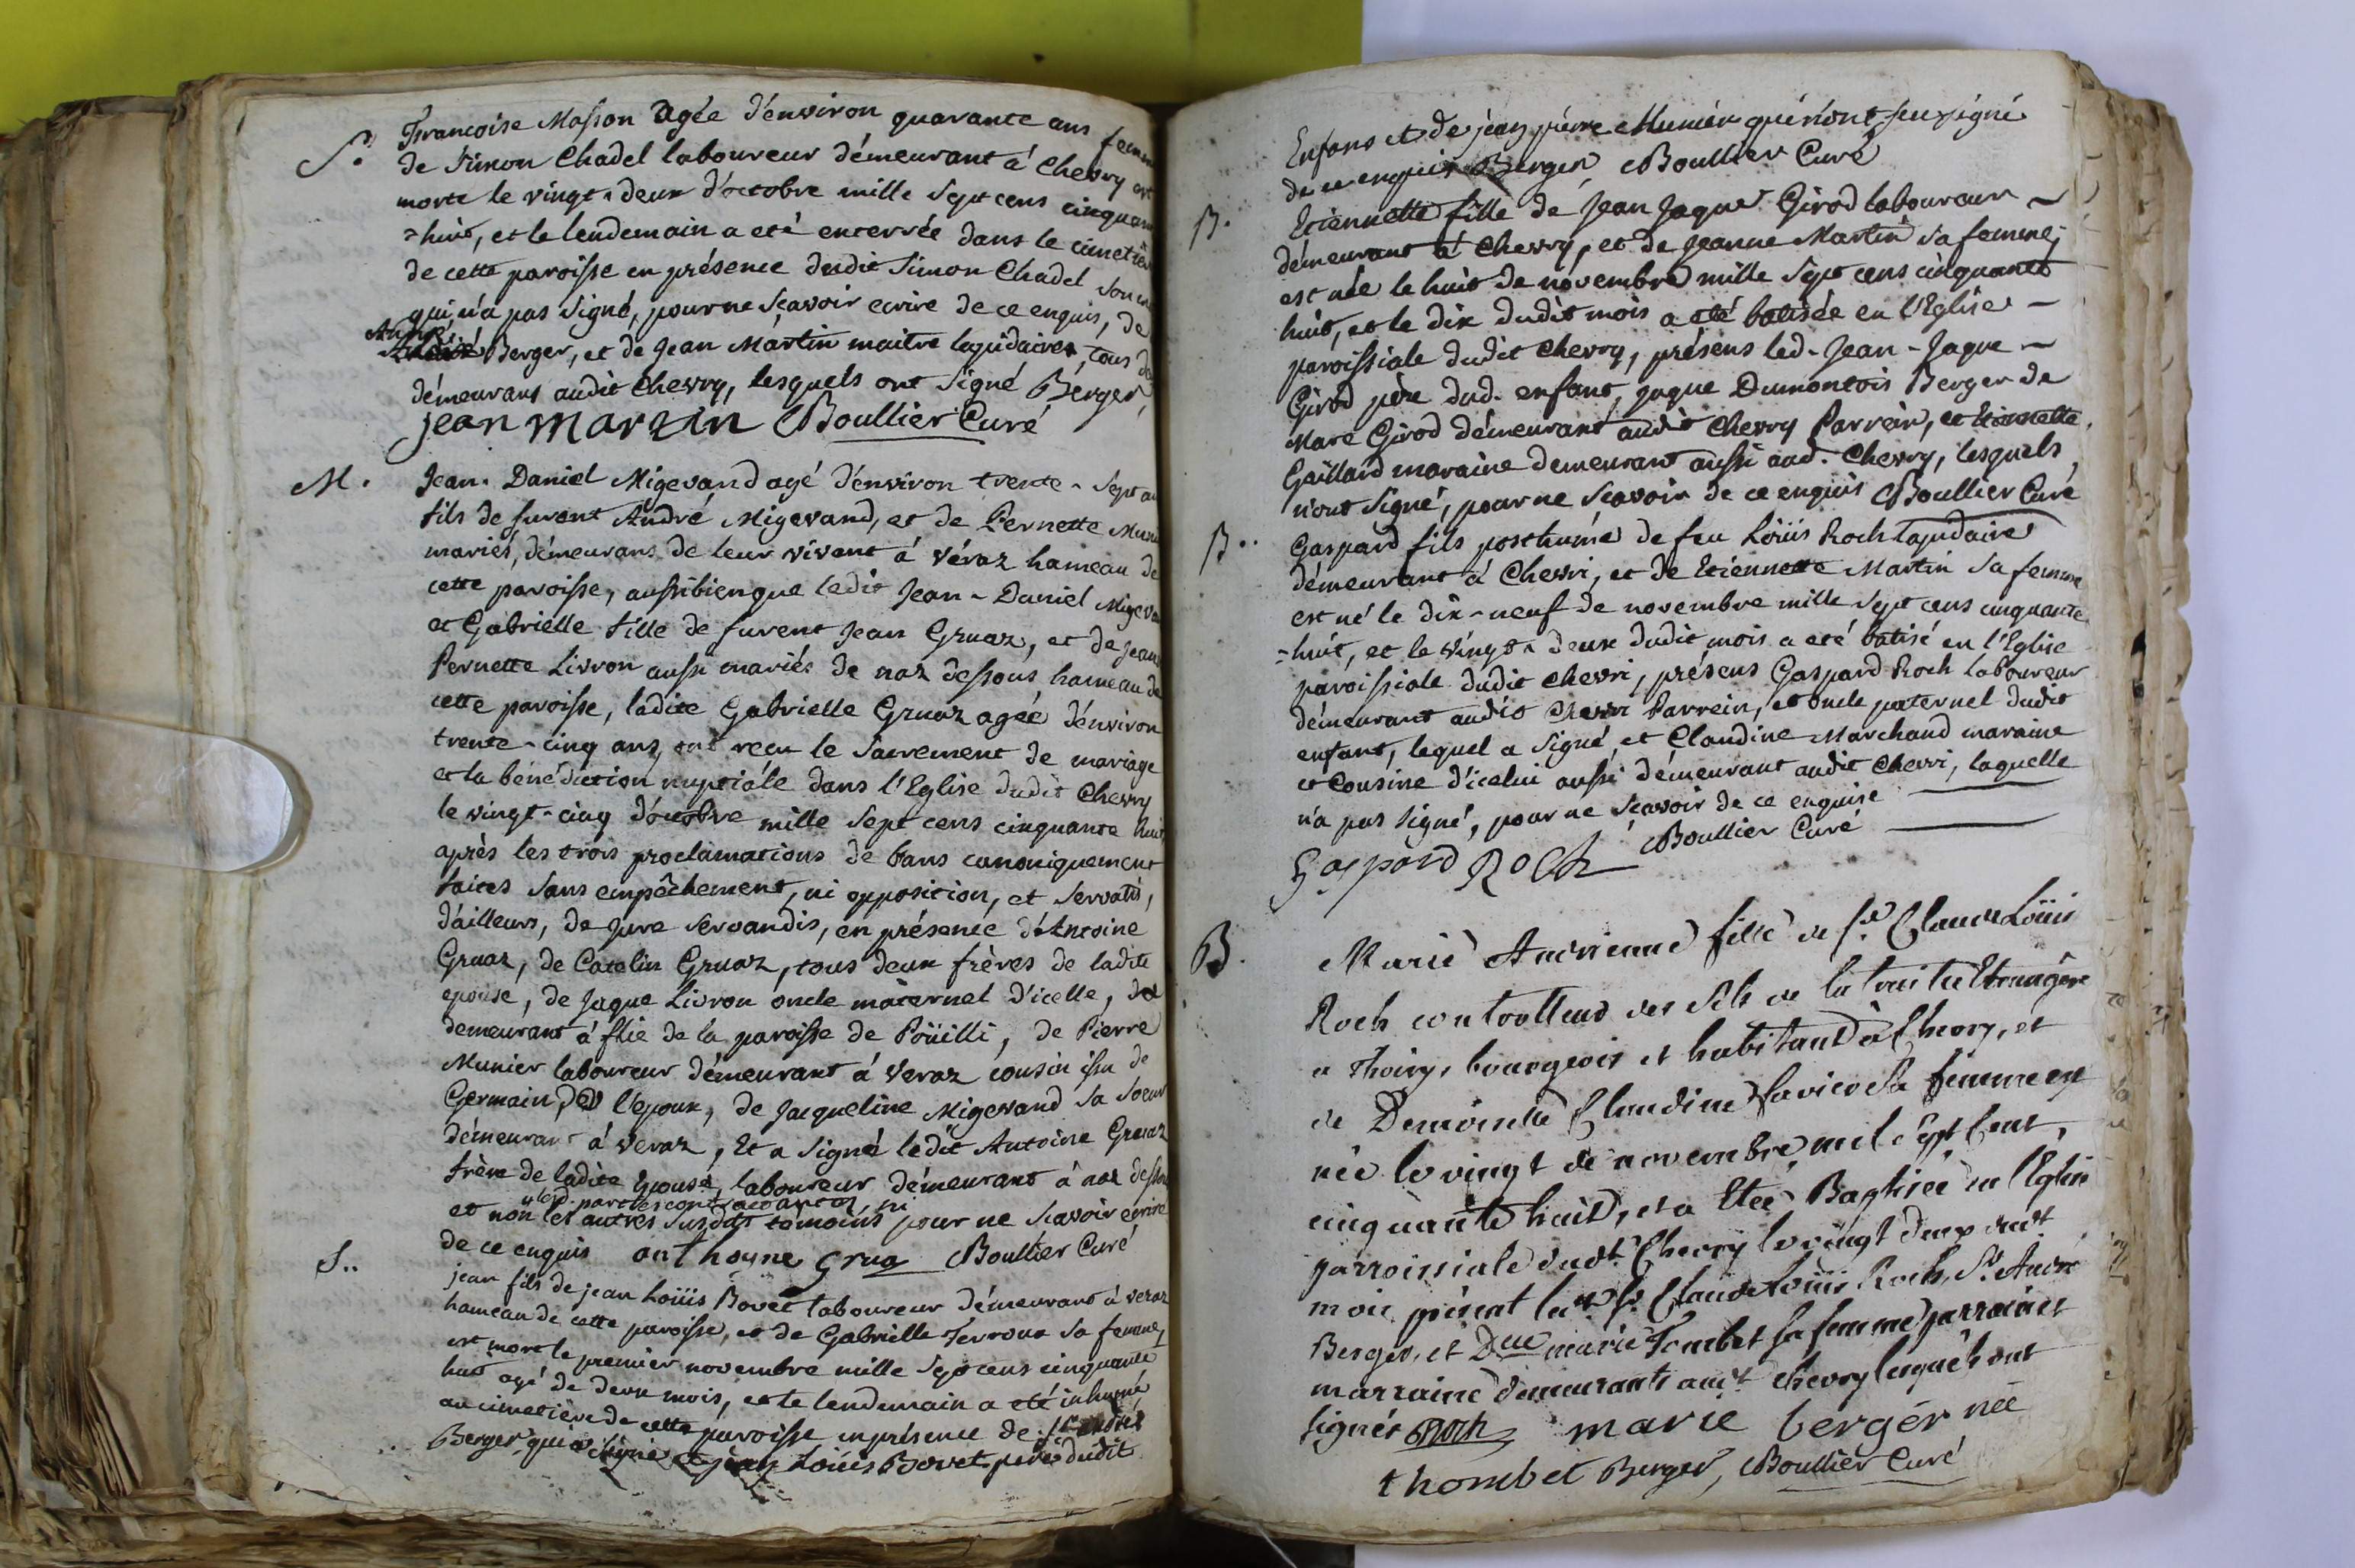 S. Francoise Masson agée d'environ quarante ans
de Simon Chadel laboureur démeurant á Chevry
morte le vingt-deux d'octobre mille sept cens
=huit, et le lendemain a eté enterrée dans le
de cette paroisse en présence dudit Simon Chadel son
qui n'a pas signé, pour ne sçavoir ecrire de ce enquis, de
André Berger, et de Jean Martin maitre lapidaires, tous
démeurans audit Chevry, lesquels ont signé Berger,
jean marzin Boullier Curé
M. Jean-Daniel Migevand agé d'environ trente-sept
fils de furent André Migevand, et de Pernette
mariés, démeurans de leur vivant á véraz hameau de
cette paroisse, aussi bien que ledit Jean-Daniel
et Gabrielle fille de furent Jean Gruaz, et de
Pernette Livron aussi mariés de naz dessous hameau de
cette paroisse, ladite Gabrielle Gruaz agée d'environ
trente-cinq ans, ont reçu le sacrement de mariage
et la bénédiction nuptiále dans l'Eglise dudit Chevry
le vingt-cinq d'octobre mille sept cens cinquante huit,
après les trois proclamations de bans canoniquement
faites sans empêchement, ni opposition, et servatis,
d'ailleurs, de jure servandis, en présence d'Antoine
Gruaz, de Catelin Gruaz, tous deux frères de ladite
epouse, de Jaque Livron oncle máternel d'icelle,
demeurant á flie de la paroisse de Poüilli, de Pierre
Munier laboureur démeurant á veraz cousin issu de
Germain, de l'epoux, de Jacqueline Migevand sa soeur
démeurant á veraz, Et a signé ledit Antoine Gruaz
frère de ladite Epouse, laboureur démeurant à naz
lesd. parties contractantes, ni
et non les autres susdits témoins pour ne sçavoir ecrire
de ce enquis anthoyne grua Boullier Curé
S.. jean fils de jean Loüis Bovet laboureur démeurant á veraz
hameau de cette paroisse, et de Gabrielle Terroux sa femme,
est mort le premier novembre mille sept cens cinquante
huit agé de deux mois, et le lendemain a eté inhumé
au cimetière de cette paroisse en présence de
Berger qui a signé et jean Loüis Bovet père dudit
Enfans et de jean pierre Munier qui n'ont sçeu signé
de ce enquis Berger, Boullier Curé
B. Etiennette fille de Jean Jaque Girod laboureur
démeurant á Chevry, et de Jeanne Martin sa femme,
est née le huit de novembre mille sept cens cinquante
huit, et le dix dudit mois a eté batisée en l'Eglise
paroissiale dudit Chevry, présens led. Jean-Jaque
Girod père dud. enfant, Jaque Dumontois Berger de
Marc Girod démeurant audit Chevry Parrein, et Etiennette
Gaillard maraine demeurant aussi aud. Chevry, lesquels
n'ont signé, pour ne sçavoir de ce enquis Boullier Curé
B.. Gaspard fils posthume de feu Loüis Roch lapidaire
démeurant á Chevri, et de Etiennette Martin sa femme
est né le dix-neuf de novembre mille sept cens cinquante
=huit, et le vingt-deux dudit mois a eté batisé en l'Eglise
paroissiale dudit Chevri, présens Gaspard Roch laboureur
démeurant audit Chevri Parrein, et oncle paternel dudit
enfant, lequel a signé, et Claudine Marchand maraine
et Cousine d'icelui aussi démeurant audit Chevri, laquelle
n'a pas signé, pour ne sçavoir de ce enquise
Gaspard Roch Boullier Curé
B. Marie Andrienne fille de Sr. Claude Loüis
Roch controlleur des sels de la traite Etrangère
a Thoiry, bourgeois et habitant à Chevry, et
de Demoiselle Claudine sa femme est
née le vingt de novembre mil sept Cent,
cinquante huit, et a Etée Baptisée en l'Eglise
parroissiale dudt. Chevry le vingt deux dudt.
mois présent ledt. Sr. Claude Loüis Roch, Sr. André
Berger, et Dlle marie Tombet sa femme parrain et
marraine demeurants audt. chevry lesquels ont
signés Roch marie bergér née
thombet Berger, Boullier Curé